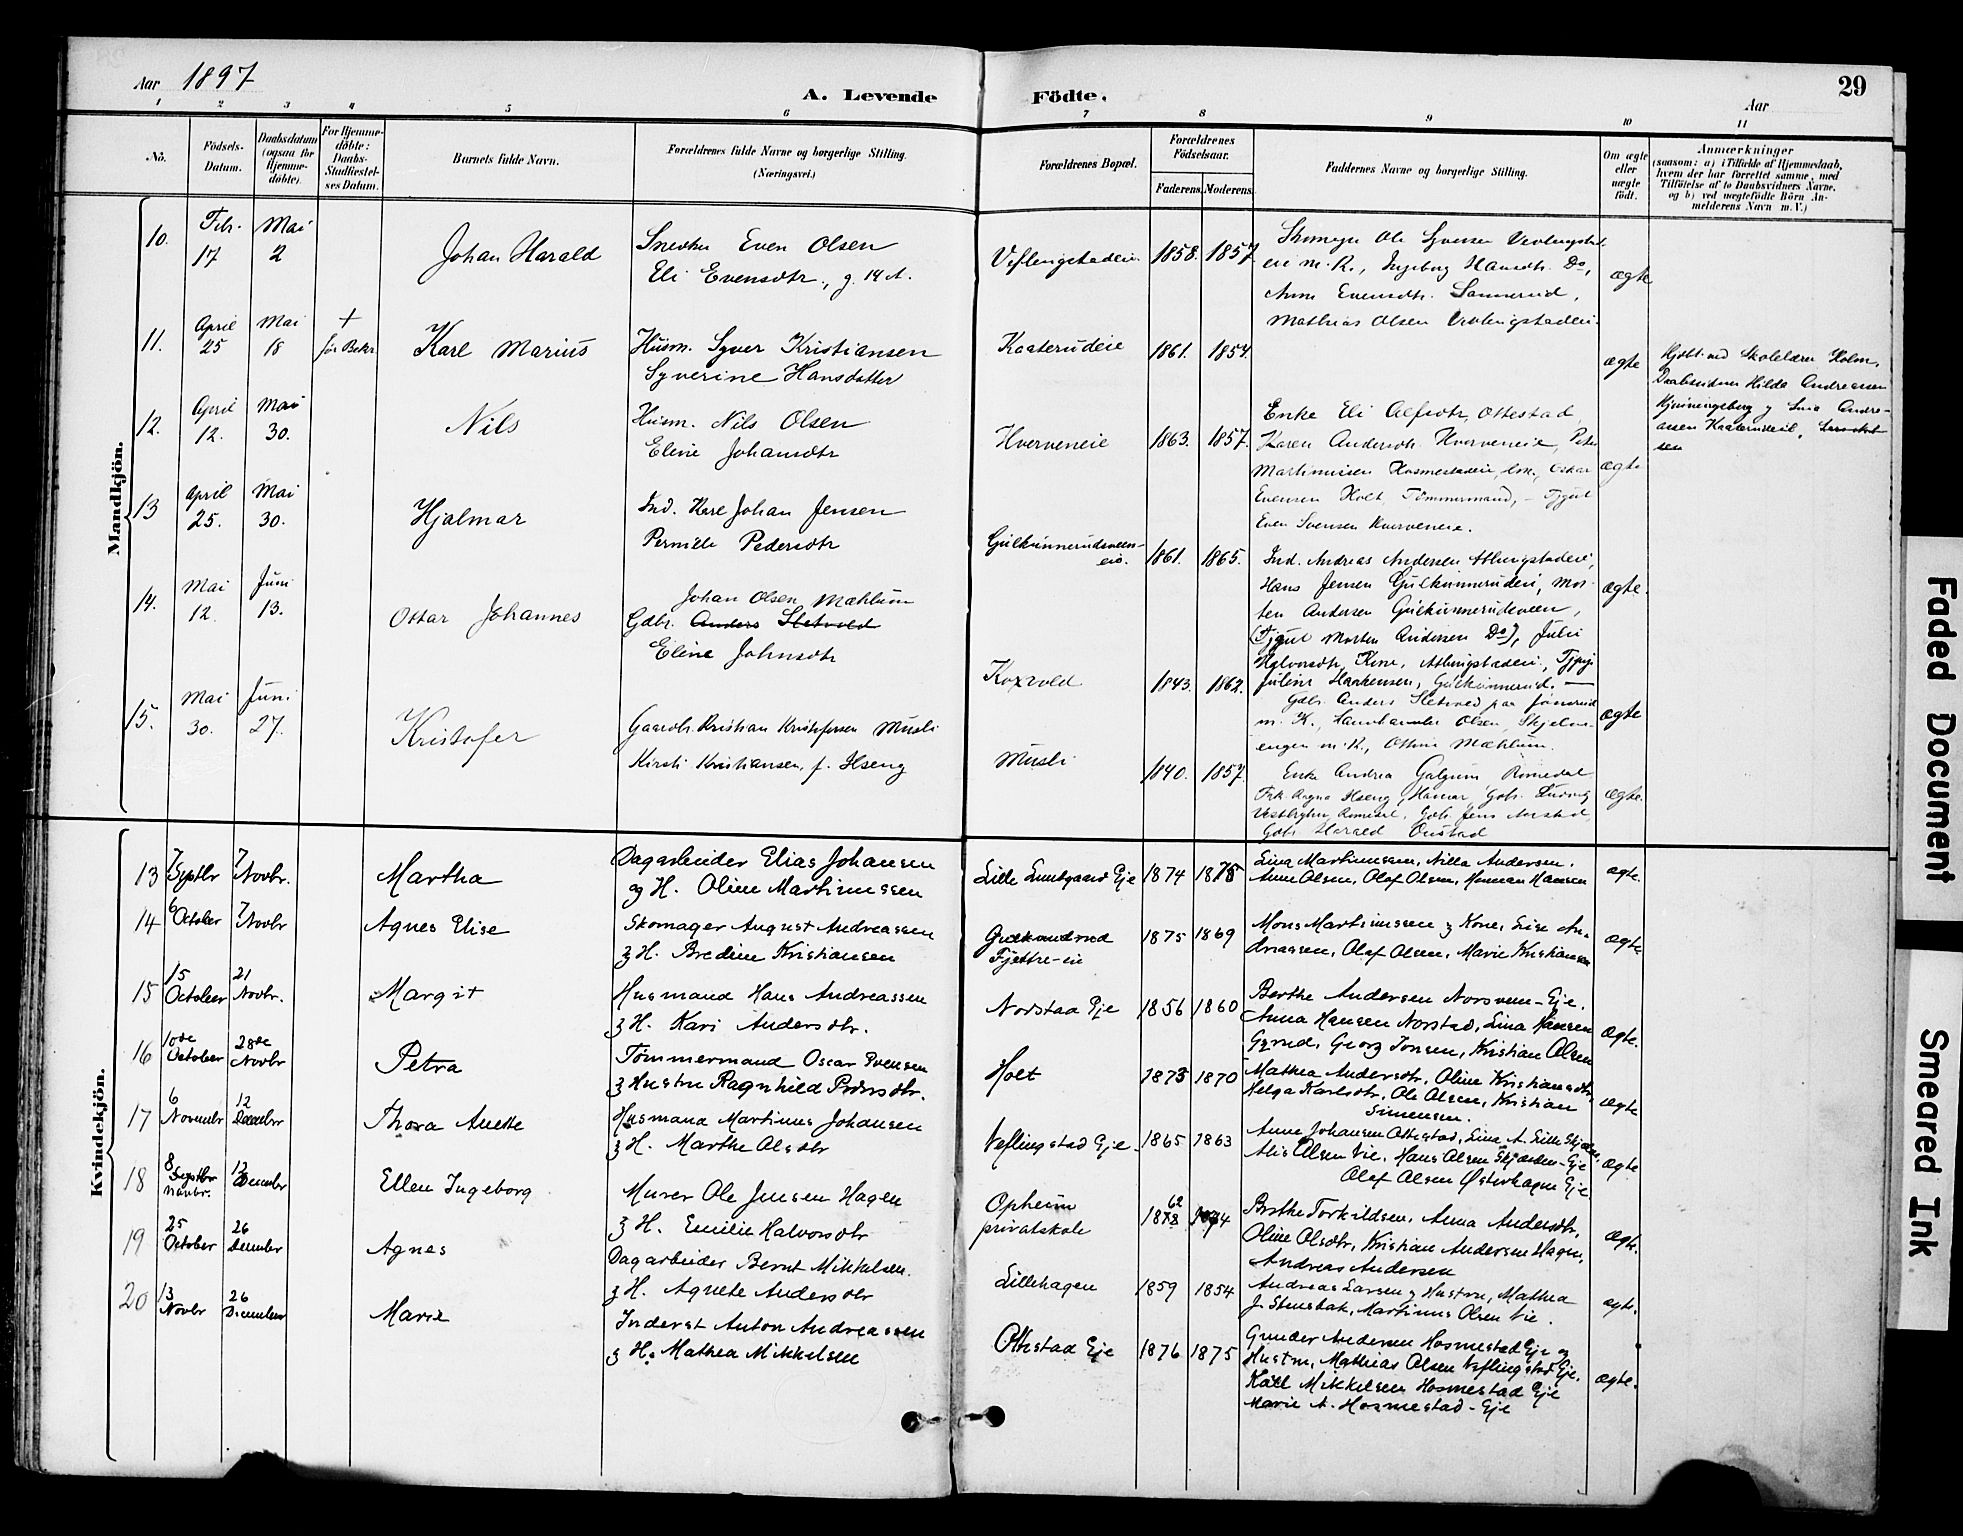 Aar 1897
A. Levende Födte.
Aar
29
1 2 3 4 5 6 7 8 9 10 11
No.
Födsels-Datum.
Daabsdatum (ogsaa for Hjemme-döbte).
For Hjemme-döbte: Daabs-Stadfæstel-ses Datum.
Barnets fulde Navn.
Forældrenes fulde Navne og borgerlige Stilling.
(Næringsvei.)
Forældrenes Bopæl.
Forældrenes Födselsaar.
Faderens. Moderens.
Faddernes Navne og borgerlige Stilling.
Om ægte eller uægte födt.
Anmærkninger
(saasom: a) i Tilfælde af Hjemmedaab,
hvem der har forrettet samme, med
Tilföielse af to Daabsvidners Navne,
og b) ved uægtefödte Börn An-
melderens Navn m. V.)
Mandkjön.
10. Febr. 17 Mai 2 Johan Harald
Snedker Even Olsen
Eli Evensdtr, g. 14 A.
Veflengstadeie 1858. 1857
Skomager Ole Syversen
eie m. K., Ingeborg Hansdtr. Do,
Anne Evensdtr.
Mathias Olsen
ægte
11. April 25 Mai 18 + før Bekr Karl Marius
Husm. Syver Kristiansen
Syverine Hansdatter
Kaaterudeie 1861. 1854.
ægte
Hjdbt ved Skolelærer Holm,
Daabsvidner Hilda Andreassen
og Lina Andre-
assen Kaaterudeie,
12. April 12. Mai 30. Nils
Husm. Nils Olsen
Eline Johansdtr
Hverveneie 1863. 1857.
Enke Eli Alfsdtr, Ottestad,
Karen Andersdtr. Hverveneie, Peter
Martinusen Hosmestadeie, Oskar
Evensen Holt Tømmermand,
Even Svensen Hverveneie.
ægte
13 April 25. Mai 30. Hjalmar
Ind. Karl Johan Jensen
Pernille Pedersdtr
Gulkunnerudsveen-
eie. 1861. 1865.
Ind. Andreas Andersen
Hans Jensen Gulkunnerudeie, Mor-
ten Andersen Gulkunnerudsveen,
(Tjgut Morten Andersen Do), Julie
Halvorsdtr, Kone,
Julius Haakensen, Gulkunnerud.
ægte.
14. Mai 12. Juni 13. Ottar Johannes
Johan Olsen Mæhlum
Gdbr. Anders Sletvold
Eline Johnsdtr
Koxvold 1843. 1862.
Gdbr. Anders Sletvold paa
m. K., Olsen, Skjelve-
engen m. K., Mæhlum.
ægte
15. Mai 30. Juni 27. Kristofer
Gaardbr. Kristian Kristofersen Musli
Kirsti Kristiansen, f. Hseng
Musli 1840. 1857.
Enke Andrea Galgum Romedal
Frk. Ragna Hseng, Hamar, Gdbr. Ludvig
Vestbyhn, Romedal, Gdbr. Jens
Gdbr Harald Onstad
ægte.
Kvindekjön.
13 7 Septbr 7 Novbr. Martha
Dagarbeider Elias Johansen
og H. Oline Martinussen
Lille Lundgaard Eje 1874 1875
Lina Martinussen, Nilla Andersen,
Anne Olsen, Olaf Olsen, Herman Hansen
ægte.
14 6 October 7 Novbr Agnes Elise
Skomager August Andreassen
& H. Bredine Kristiansen
Gulkunderud
Fjettre-eie 1875 1869
Mons Martinussen & Kone, Lise An-
dreassen, Olaf Olsen, Marie Kristiansen
ægte.
15 15 October 21 Novbr. Margit
Husmand Hans Andreassen
& H. Kari Andersdtr.
Norstad Eje 1856 1860
Berthe Andersen Norsveen-Eje.
Anna Hansen Norstad, Lina Hansen
Georg Jonsen, Kristian Olsen
ægte.
16 10de October 28de Novbr Petra
Tømmermand Oscar Evensen
& Hustru Ragnhild Pedersdtr.
Holt 1875 1870
Mathea Andersdtr, Oline Kristiansdtr,
Helga Karlsdtr, Ole Olsen, Kristian
Simensen.
ægte
17 6 Novembr 12 Decembr Thora Anette
Husmand Martinus Johansen
& H. Marthe Olsdtr
Veflingstad Eje. 1865 1863
Anne Johansen Ottestad, Lina A. Lille
Olsen Vie, Hans Olsen Skjærden-Eje
Olaf Olsen Østerhagen Eje
ægte
18 8 Septbr Novbr. 12 Decembr Ellen Ingeborg
Murer Ole Jensen Hagen
& H. Emilie Halvorsdtr
Opheim
privatskole
62
1878 1874
Berthe Torkildsen, Anna Andersdtr,
Oline Olsdtr, Kristian Andersen Hagen,
Andreas Andersen
ægte.
19 25 October 26 Decembr Agnes
Dagarbeider Bernt Mikkelsen.
& H. Agnete Andersdtr
Lillehagen 1859 1854
Andreas Larsen & Hustru, Mathea
J. Stenshak, Martinus Olsen Vie.
ægte.
20 13 Novbr 26 Decembr Marie
Inderst Anton Andreassen
& H. Mathea Mikkelsen
Ottestad Eje 1876 1875
Gunder Andersen Hosmestad Eje og
Hustru, Mathias Olsen Veflingstad Eje,
Karl Mikkelsen Hosmestad Eje
Marie A. Hosmestad-Eje
ægte.
Faded Document
Smeared Ink